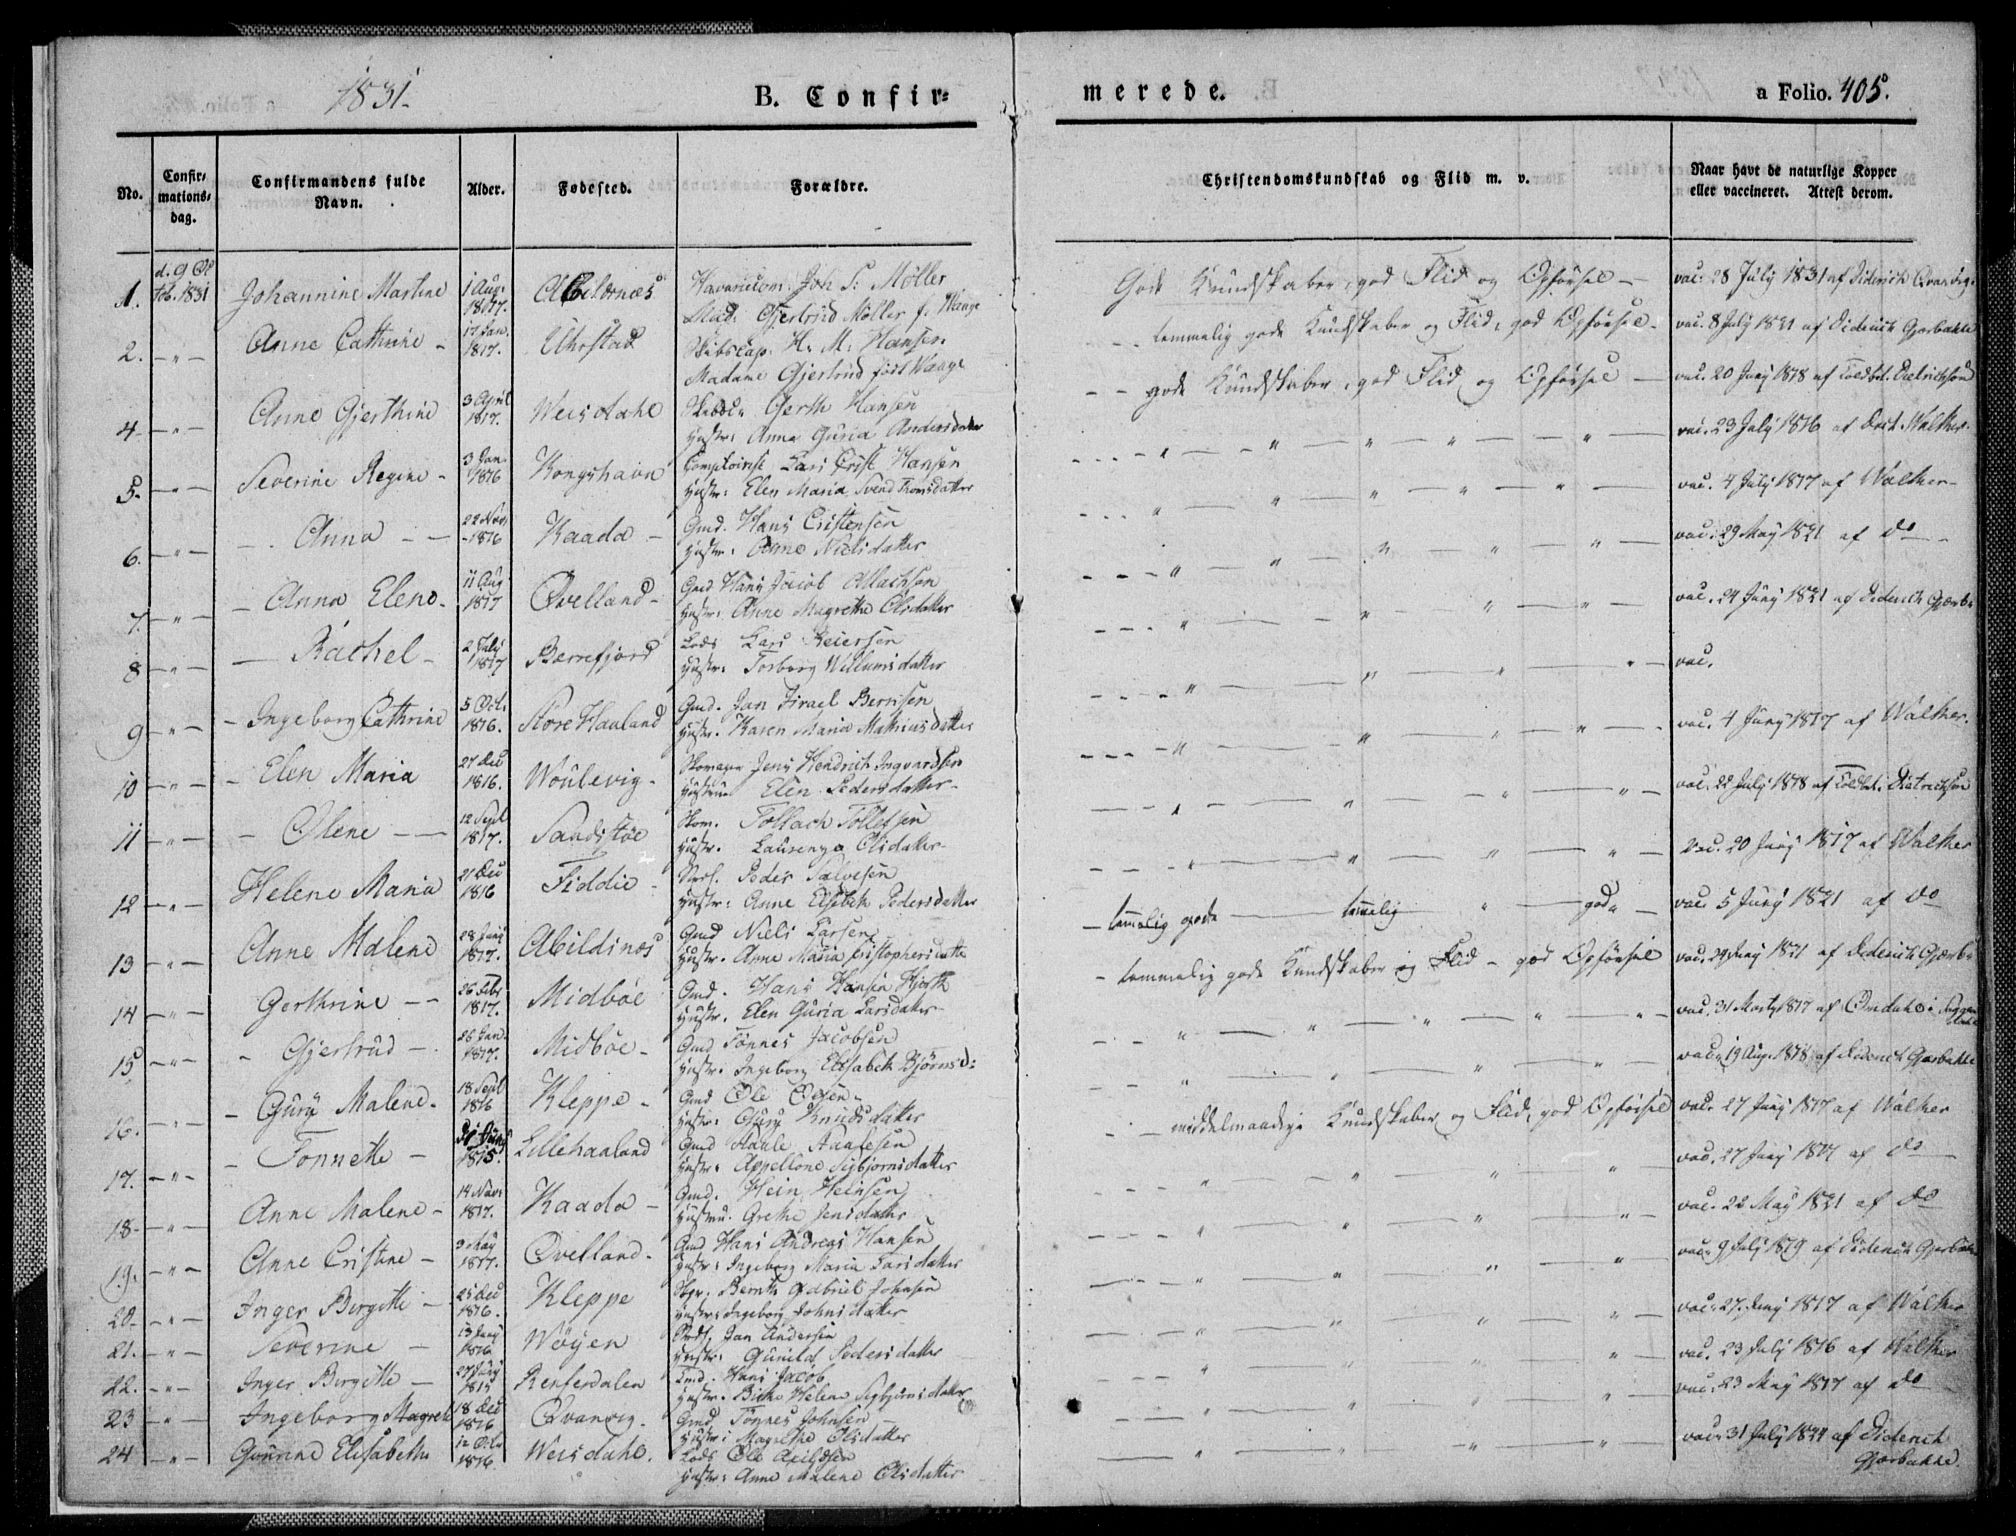 1831.
B. Confir=
merede.
a Folio. 405.
No.
Confir=
mations=
dag.
Confirmandens fulde
Navn.
Alder.
Fødested.
Forældre.
Christendomskundskab og Flid m. v.
Naar havt de naturlige Kopper
eller vaccineret. Attest derom.
1. d. 9 Oc
tob. 1831 Johannine Martine 1 Aug. 1817. Abildsnæs Joh S. Møller
Mad. Gjertrud Møller f. Waage
Gode Kundskaber, god Flid og Opførsel — vac. 28 July 1831 af Diderich
2. - " - Anne Cathrine - 17 Jan. 1817. Uhrstad Skibscap. H. M. Hansen
Madame Gjertrud født Waage
- - temmelig gode Kundskaber og Flid, god Opførsel - vac. 8 July 1821 af Diderich Gjærbakke
4 - " - Anne Gjerthine 3 April 1817. Weisdahl Gerth Hansen
Hustr: Anne Guria Andersdatter
- - gode Kundskaber, god Flid og Opførsel — vac. 20 Juny 1818 af Toldbet. Dietrichson
5. - " - Severine Regine - 3 Jan. 1816 Kongshavn Lars Crist Hansen
Hustr: Elen Maria Svend Tomsdatter
vac. 23 July 1816 af Walther
6. - " - Anna - - 22 Nov. 1816 Kaada - Gmd. Hans Cristensen
Hustr: Anne Nielsdatter
vac. 4 July 1817 af Walther
7. - " - Anna Elene. 11 Aug. 1817 Øvelland - Gmd Hans Jacob
Hustr: Anne Magrethe Olsdatter
vac: 29 May 1821 af do
8 - " - Rachel - 2 July 1817 Berrefjord Lods Lars Reiersen
Hustr: Torborg Willumsdatter
vac. 24 Juny 1821 af Diderich Gjærb:
9 - " - Ingeborg Cathrine 5 Oct. 1816. Store Hauland Gmd. Jan Israel Berntsen
Hustr. Karen Maria Mathiasdatter
vac.
10 - " - Elen Maria 27 Dec 1816. Woulevig - Skomager Jens Hendrich Ingvardsen
Hustrue Elen Pedersdatter -
vac. 4 Juny 1817 af Walther.
11 - " - Olene - - 12 Sept 1817. Sandstøe Skom. Tollach Tollefsen
Hustr. Laurenze Olsdatter
vac. 22 July 1818 af Toldbet. Dietrichson
12 - " - Helene Maria 21 Dec 1816 Fiddie - Peder Salvesen
Hustr: Anne Elsebeh Pedersdatter
vac. 20 Juny 1817 af Walther
13 - " - Anne Malene 28 Juny 1817. Abildsnæs Gmd Niels Larsen
Hustr. Anne Maria Cristophersdatter
- temmelig gode — temmelig " — gode — vac. 5 Juny 1821 af do
14 - " - Gerthrine - - 26 Febr 1817. Midbøe Gmd. Hans Hansen Hjorth
Hustr. Elen Guria Larsdatter
- temmelig gode Kundskaber og Flid - god Opførsel vac. 29 Juny 1821 af Diderich Gjærb:
15 - " - Gjertrud - 26 Jan. 1817. Midbøe - Gmd Tønnes Jacobsen
Hustr. Ingeborg Elisabeth Bjørnsd:
vac. 31 Marty 1817 af Omdahl i
16. - " - Gury Malene. 18 Sept 1816 Kleppe - Gmd Ole Olsen
Hustr: Gury Knudsdatter
vac. 19 Aug. 1818 af Diderich Gjærbakke
17. - " - Tonnette - 1815. Lillehaaland Gmd Aaale Aaalesen
Hustr: Appellone Sigbjørnsdatter
- - middelmaadige Kundskaber og Flid, god Opførsel vac. 27 Juny 1817 af Walther
18 - " - Anne Malene - 14 Nov. 1817. Kaada - Gmd. Hein Heinsen
Hustru. Grethe Jensdatter
vac. 27 Juny 1817 af do
19. - " - Anne Cristine - 9 May 1817. Øvelland. Gmd Hans Andreas Hansen
Hustr: Ingeborg Maria Larsdatter
vac. 22 May 1821 af do
20 - " - Inger Birgitte - 25 Dec 1816. Kleppe Bernth Gabriel Johnsen
Hustr: Ingeborg Johnsdatter
vac. 9 July 1819 af Diderich Gjærbakke
21. - " - Severine - 13 Juny 1816 Wøyen Jan Andersen
Hustr: Gunild Pedersdatter
vac. 27. Juny 1817 af Walther
22. - " - Inger Birgitte - 27 July 1815 Renfersdalen Hans Jacob
Hustr. Birthe Helene Sigbjørnsdatter
vac. 23 July 1816 af Walther
23 - " - Ingeborg Magrete 18 Dec 1816 Qvanvig. Gmd. Tønnes Johnsen -
Hustr: Magrethe Olsdatter
vac. 23 May 1817 af do
24 - " - Gunine Elisabeth 12 Octr 1816 Weisdahl. Lods Ole
Hustr: Anne Malene Olsdatter
vac. 31 July 1821 af Diderich
Gjærbakke.